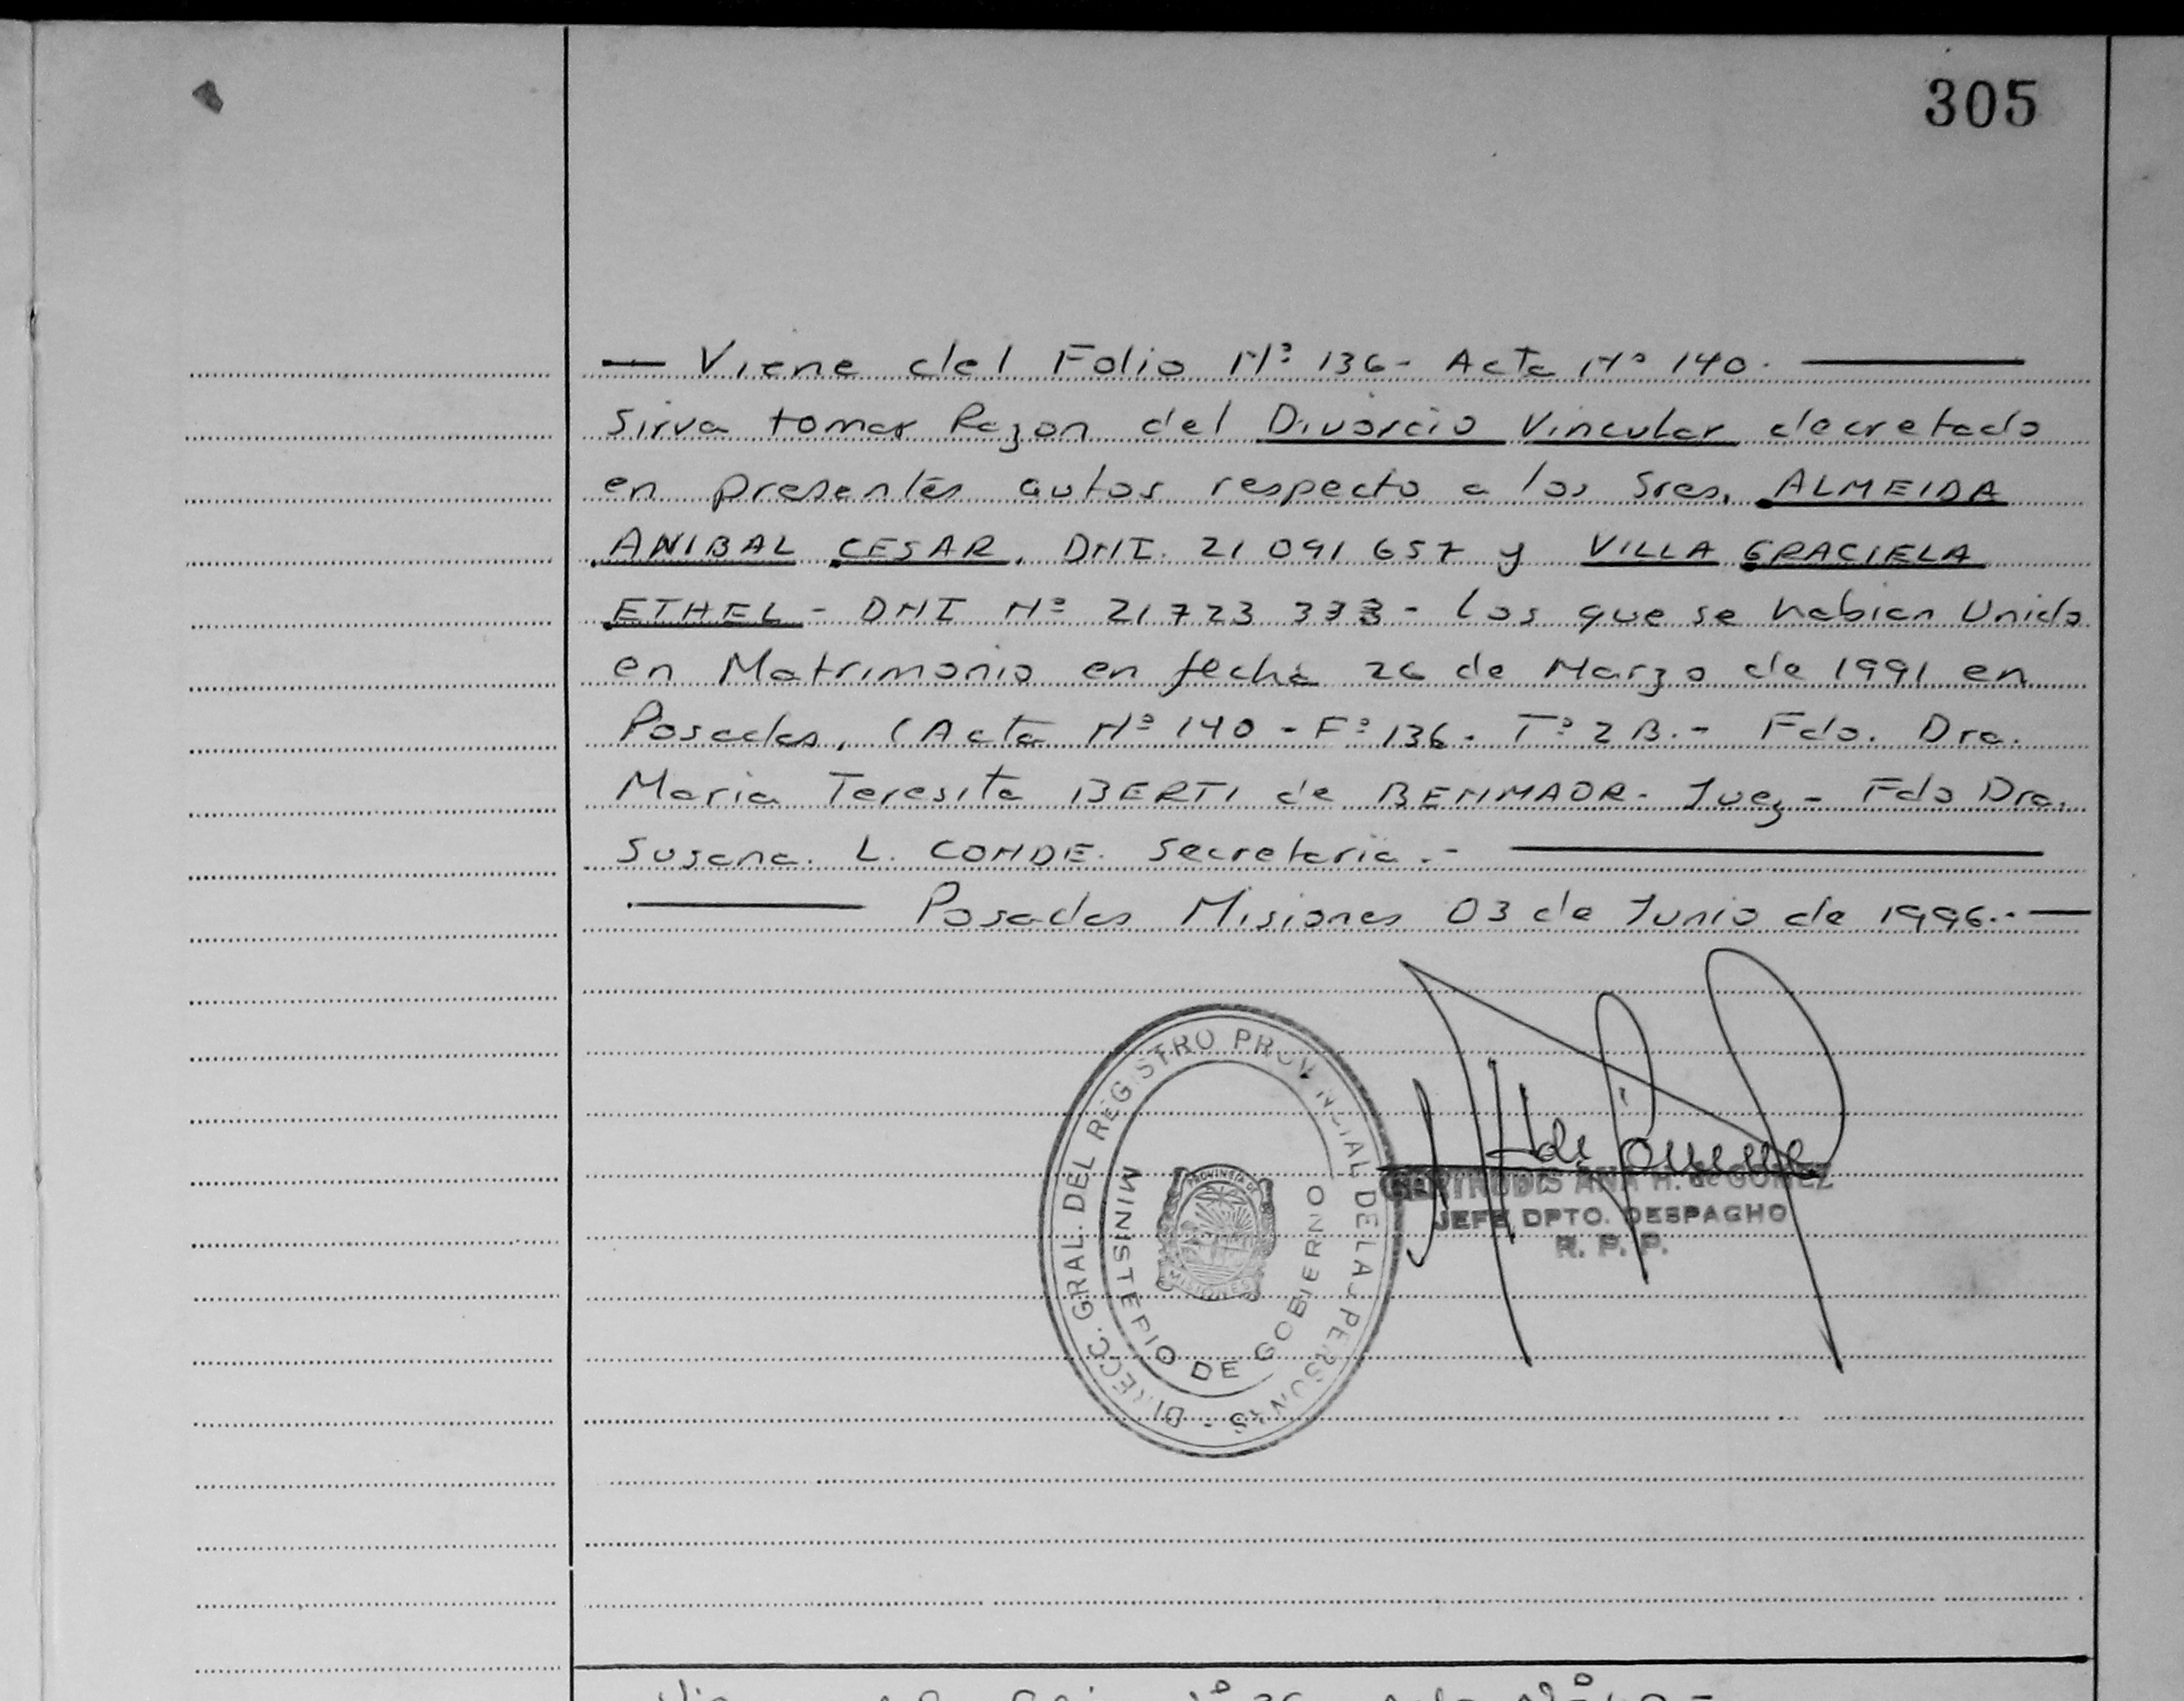 305
— Viene del Folio Nº 136 - Acta Nº 140. —
Sirva tomar Razon del Divorcio Vincular decretado
en presentes autos respecto a los Sres. ALMEIDA
ANIBAL CESAR, DNI. 21 091 657 y VILLA GRACIELA
ETHEL - DNI Nº 21 723 333 - los que se habian Unido
en Matrimonio en fecha 26 de Marzo de 1991 en
Posadas, (Acta Nº 140 - Fº 136 - Tº 2 B. - Fdo. Dra.
Maria Teresita BERTI de BENMAOR - Juez - Fdo Dra.
Susana. L. CONDE. Secretaria. - —
— Posadas Misiones 03 de Junio de 1996.. —
DIRECC. GRAL. DEL REGISTRO PROVINCIAL DE LAS PERSONAS -
MINISTERIO DE GOBIERNO
PROVINCIA DE
MISIONES
GERTRUDIS ANA H. de GOMEZ
JEFE DPTO. DESPACHO
R. P. P.